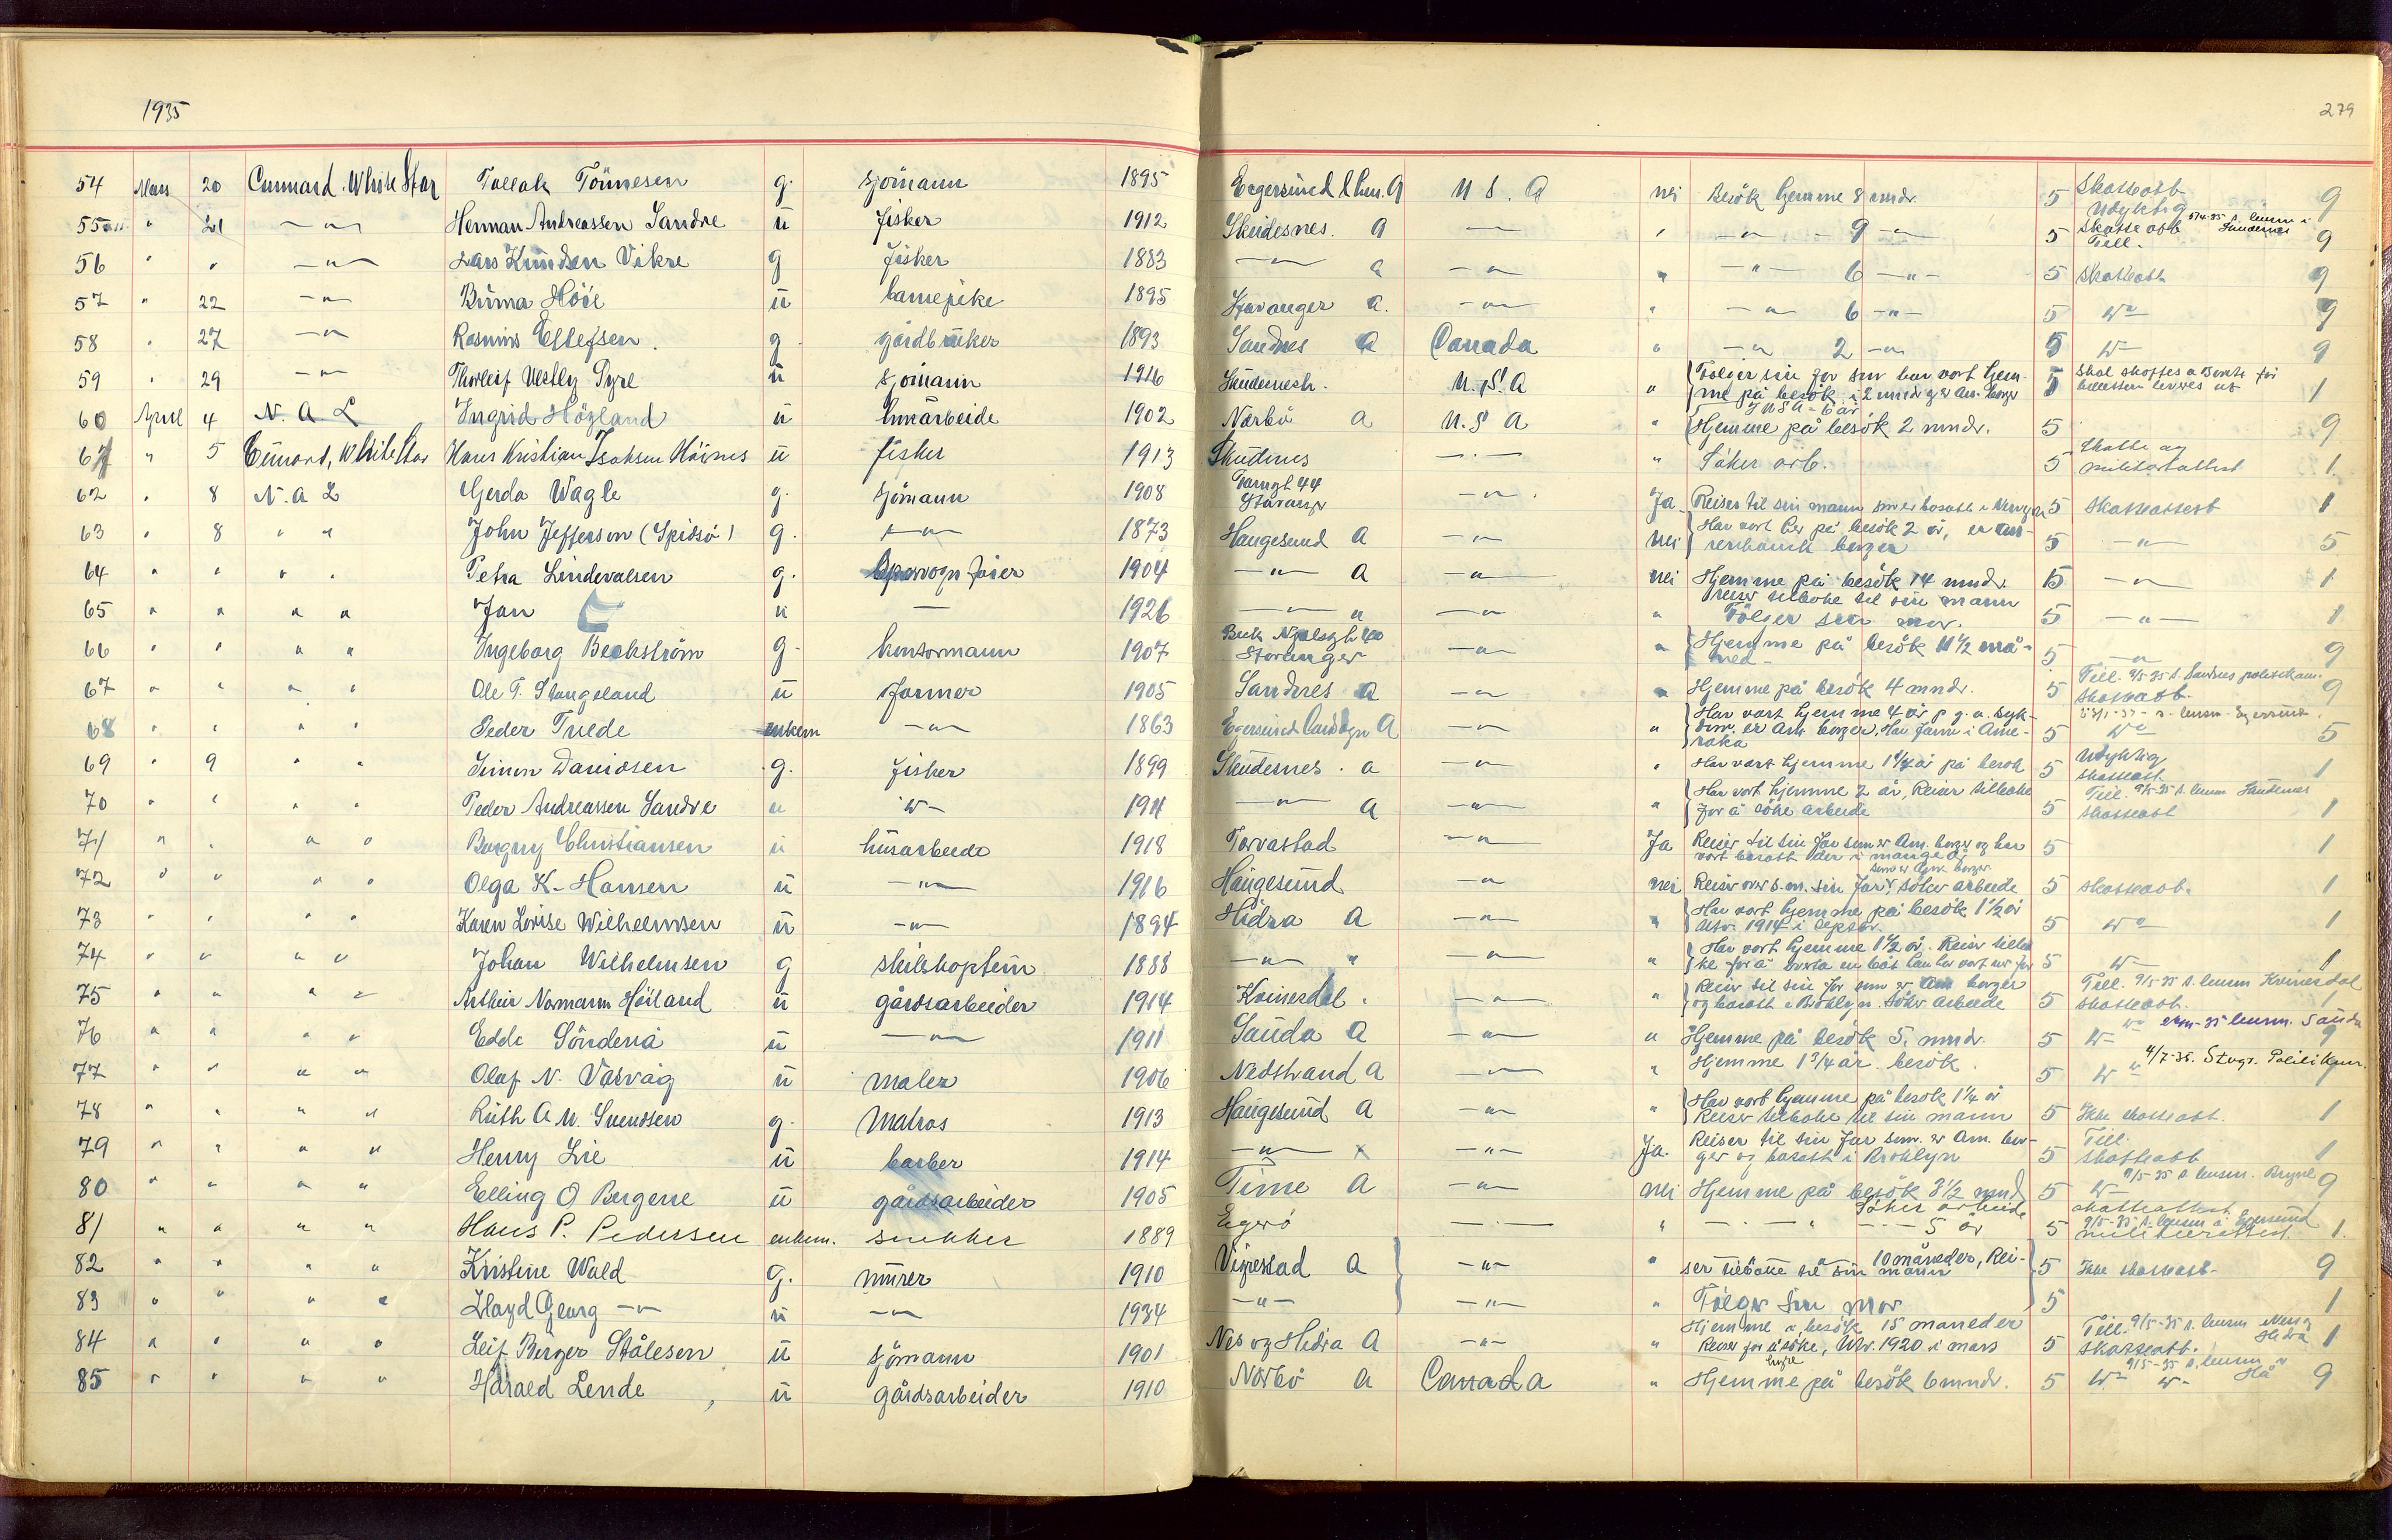 1935
279
54 Mars 20 Cunnard. White Star Tallak Tönnesen g. sjömann 1895 Eegersund l hen. A U S. A nei Besök hjemme 8 mndr. 5 Skatteatt 9
55 " 21 —"— Herman Andreassen Sandve ü fisker 1912 Skudesnes. A —"— " —"— 9 —"— 5 Utsyktig Skatteatt Till. 9
56 " " —"— Lars Knudsen Vikre g fisker 1883 —"— a —"— " —"— 6 —"— 5 Skatteatt 9
57 " 22 —"— ü barnepike 1895 Stavanger a. —"— " —"— 6 —"— 5 9
58 " 27 —"— Rasmus Ellefsen. g gårdbrüker 1893 Sandnes A Canada " —"— 2 —"— 5 9
59 " 29 —"— Thorleif Vestly Syre ü sjömann 1916 Skudenesh. U. S. A " Fölger sin far som har vært hjem-
me på besök i 2 mndr og er Am. borger 5 1
60 April 4 N. A. L Ingrid Högland ü husarbeide 1902 Nærbö A U. S A " Hjemme på besök 2 mndr. 5 9
61 " 5 Cunard, White Star Hans Kristian Isaksen ü fisker 1913 Skudenes —"— " Söker arb. 5 Skatte og militærattest 1
62 " 8 N. A L Gerda Wagle g. sjömann 1908 Stavanger —"— Ja Reiser til sin mann som er bosatt i 5 Skatteattest 1
63 " 8 " " John Jefferson (Spidsö) g. —"— 1873 Haugesund A —"— nei Har vært her på besök 2 år, er am-
rerikansk borger 5 —"— 5
64 " " " " Petra Lindevalsen g. 1904 —"— A —"— nei Hjemme på besök 14 mndr.
reiser tilbake til sin mann 5 —"— 1
65 " " " " Jan u — 1926 —"— " —"— " Fölger sin mor. 5 —"— 1
66 " " " " Ingeborg Beckström g- kontormann 1907 Stavanger —"— " Hjemme på besök 11 1/2 må-
ned- 5 —"— 9
67 " " " " Ole T. Stangeland ü farmer 1905 Sandnes A —"— " Hjemme på besök 4 mndr. 5 Till. 9/5-35 s. Sandnes politikam. Skatteatt. 9
68 " " " " Peder Tuede enkem —"— 1863 Egersund landsogn A —"— " Har vært hjemme 4 år p. g. a. syk-
dom, er Am. borger. Har farm i Ame-
rika 5 5
69 " 9 " " Simon Davidsen g. fisker 1899 Skudenes. a —"— " Har vært hjemme 1 1/4 år på besök 5 Utsyktig Skatteatt 1
70 " " " " Peder Andreassen Sandve u —"— 1911 —"— a —"— " Har vært hjemme 2 år, Reiser tilbake
for å söke arbeide 5 Till. 9/5-35 s. lensm Skudenes Skatteatt 1
71 " " " " Borgny Christiansen ü husarbeide 1918 Torvastad —"— Ja Reiser til sin far som er Am. borger og har
vært bosatt der i mange år 5 1
72 " " " " Olga K. Hansen ü —"— 1916 Haugesund —"— nei Reiser over s.m. sin far, söker arbeide
som er Am. borger 5 Skatteatt. 1
73 " " " " Karen Lovise Wilhelmsen ü —"— 1894 Hidra A —"— " Har vært hjemme på besök 1 1/2 år
Utv. 1914 i septbr. 5 1
74 " " " " Johan Wilhelmsen g skibskaptein 1888 —"— " —"— " Har vært hjemme 1 1/2 år. Reiser tilba-
ke for å 5 1
75 " " " " Arthur Normann Höiland ü gårdsarbeider 1914 Kvinesdal. —"— " Reiser til sin far som er Am borger
og bosatt i Broklyn. Söker arbeide 5 Till. 9/5-35 s. lensm Kvinesdal Skatteatt. 1
76 " " " " Edde Söndenå ü —"— 1911 Sauda A —"— " Hjemme på besök 5 mndr. 5 lensm. Sauda 9
77 " " " " Olaf N. Vasvåg ü maler 1906 Nedstrand A —"— " Hjemme 1 3/4 år. besök. 5 4/7-35. Stvgr. Politikam.
78 " " " " Ruth A. M. Svendsen g. Matros 1913 Haugesund A —"— " Har vært hjemme på besök 1 1/4 år
Reiser tilbake til sin mann 5 Ikke skatteatt. 1
79 " " " " Henry Lie ü barber 1914 —"— x —"— Ja. Reiser til sin far som er Am. bor-
ger og bosatt i Broklyn 5 Till. Skatteatt 1
80 " " " " Elling O Bergene ü gårdsarbeider 1905 Time A —"— nei Hjemme på besök 3 1/2 mnd 5 9/5-35 s. lensm. Bryne 9
81 " " " " Hans P. Pedersen enkem. snekker 1889 Egerö —"— " Söker arbeide
—"— 5 år 5 skatteattest 9/5-35 s. lensm i Egersund militærattest. 1.
82 " " " " Kristine Wald g. murer 1910 Vigrestad A —"— " " 10 måneder, Rei-
ser tilbake til sin mann 5 Ikke skatteatt- 9
83 " " " " Lloyd Georg —"— ü —"— 1934 —"— —"— " Fölger sin mor 5 1
84 " " " " Leif Birger Stålesen ü sjömann 1901 Nes og Hidra A —"— " Hjemme på besök 15 måneder
Reiser for å söke hyre, Utv. 1920 i mars 5 Till. 9/5-35 s. lensm Nes og Hidra Skatteatt. 1
85 " " " " Harald Lende ü gårdsarbeider 1910 Nærbö a Canada " Hjemme på besök 6 mndr. 5 9/5-35 s. lensm i Hå 9